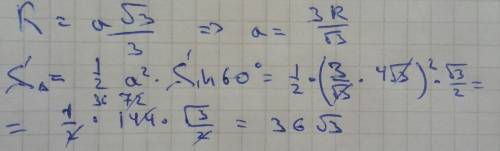 R = a √3/3 => a = 3R/√3
S△ = 1/2 a² · Sin60° = 1/2 · (3/√3 · 4√3)² · √3/2 =
36 72
= 1/2 · 144 · √3/2 = 36√3